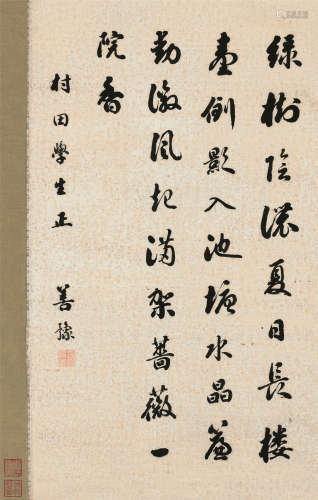 綠樹陰濃夏日長樓
臺倒影入池塘水晶簾
動微風起滿架薔薇一
院香
村田學生正 善豫